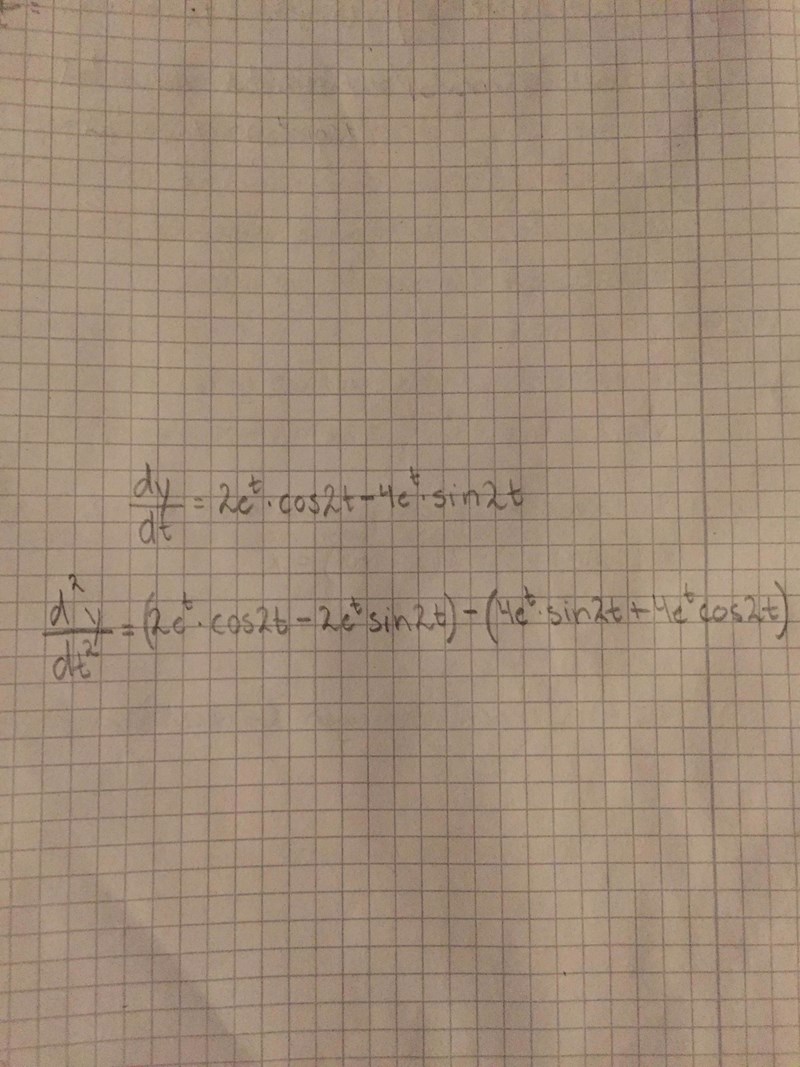 dy/dt = 2e^t · cos2t - 4e^t · sin2t
d²y/dt² = (2e^t · cos2t - 2e^t sin2t) - (4e^t · sin2t + 4e^t cos2t)